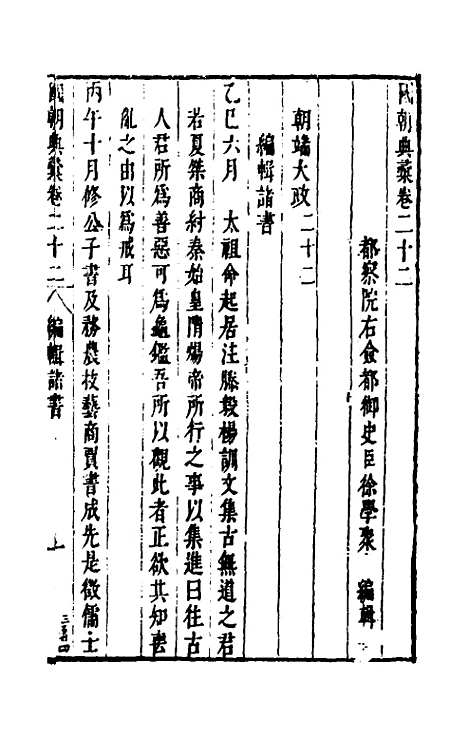 國朝典彙卷二十二
都察院右僉都御史臣徐學聚 編輯
朝端大政二十二
編輯諸書
乙巳六月 太祖命起居注滕毅楊訓文集古無道之君
若夏桀商紂秦始皇隋煬帝所行之事以集進曰往古
人君所爲善惡可爲龜鑑吾所以觀此者正欲其知喪
亂之由以爲戒耳
丙午十月修公子書及務農技藝商賈書成先是徵儒士
國朝典彙卷二十二 編輯諸書